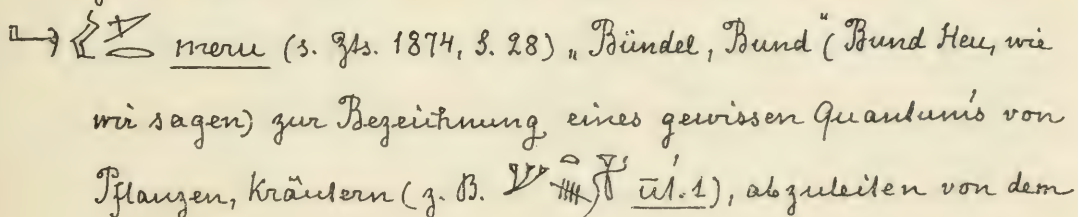 meru (s. Zts. 1874, S. 28) „Bündel, Bund“ (Bund Heu, wie
wir sagen) zur Bezeichnung eines gewissen Quantum's von
Pflanzen, Kräutern (z. B. út. 1), abzuleiten von dem